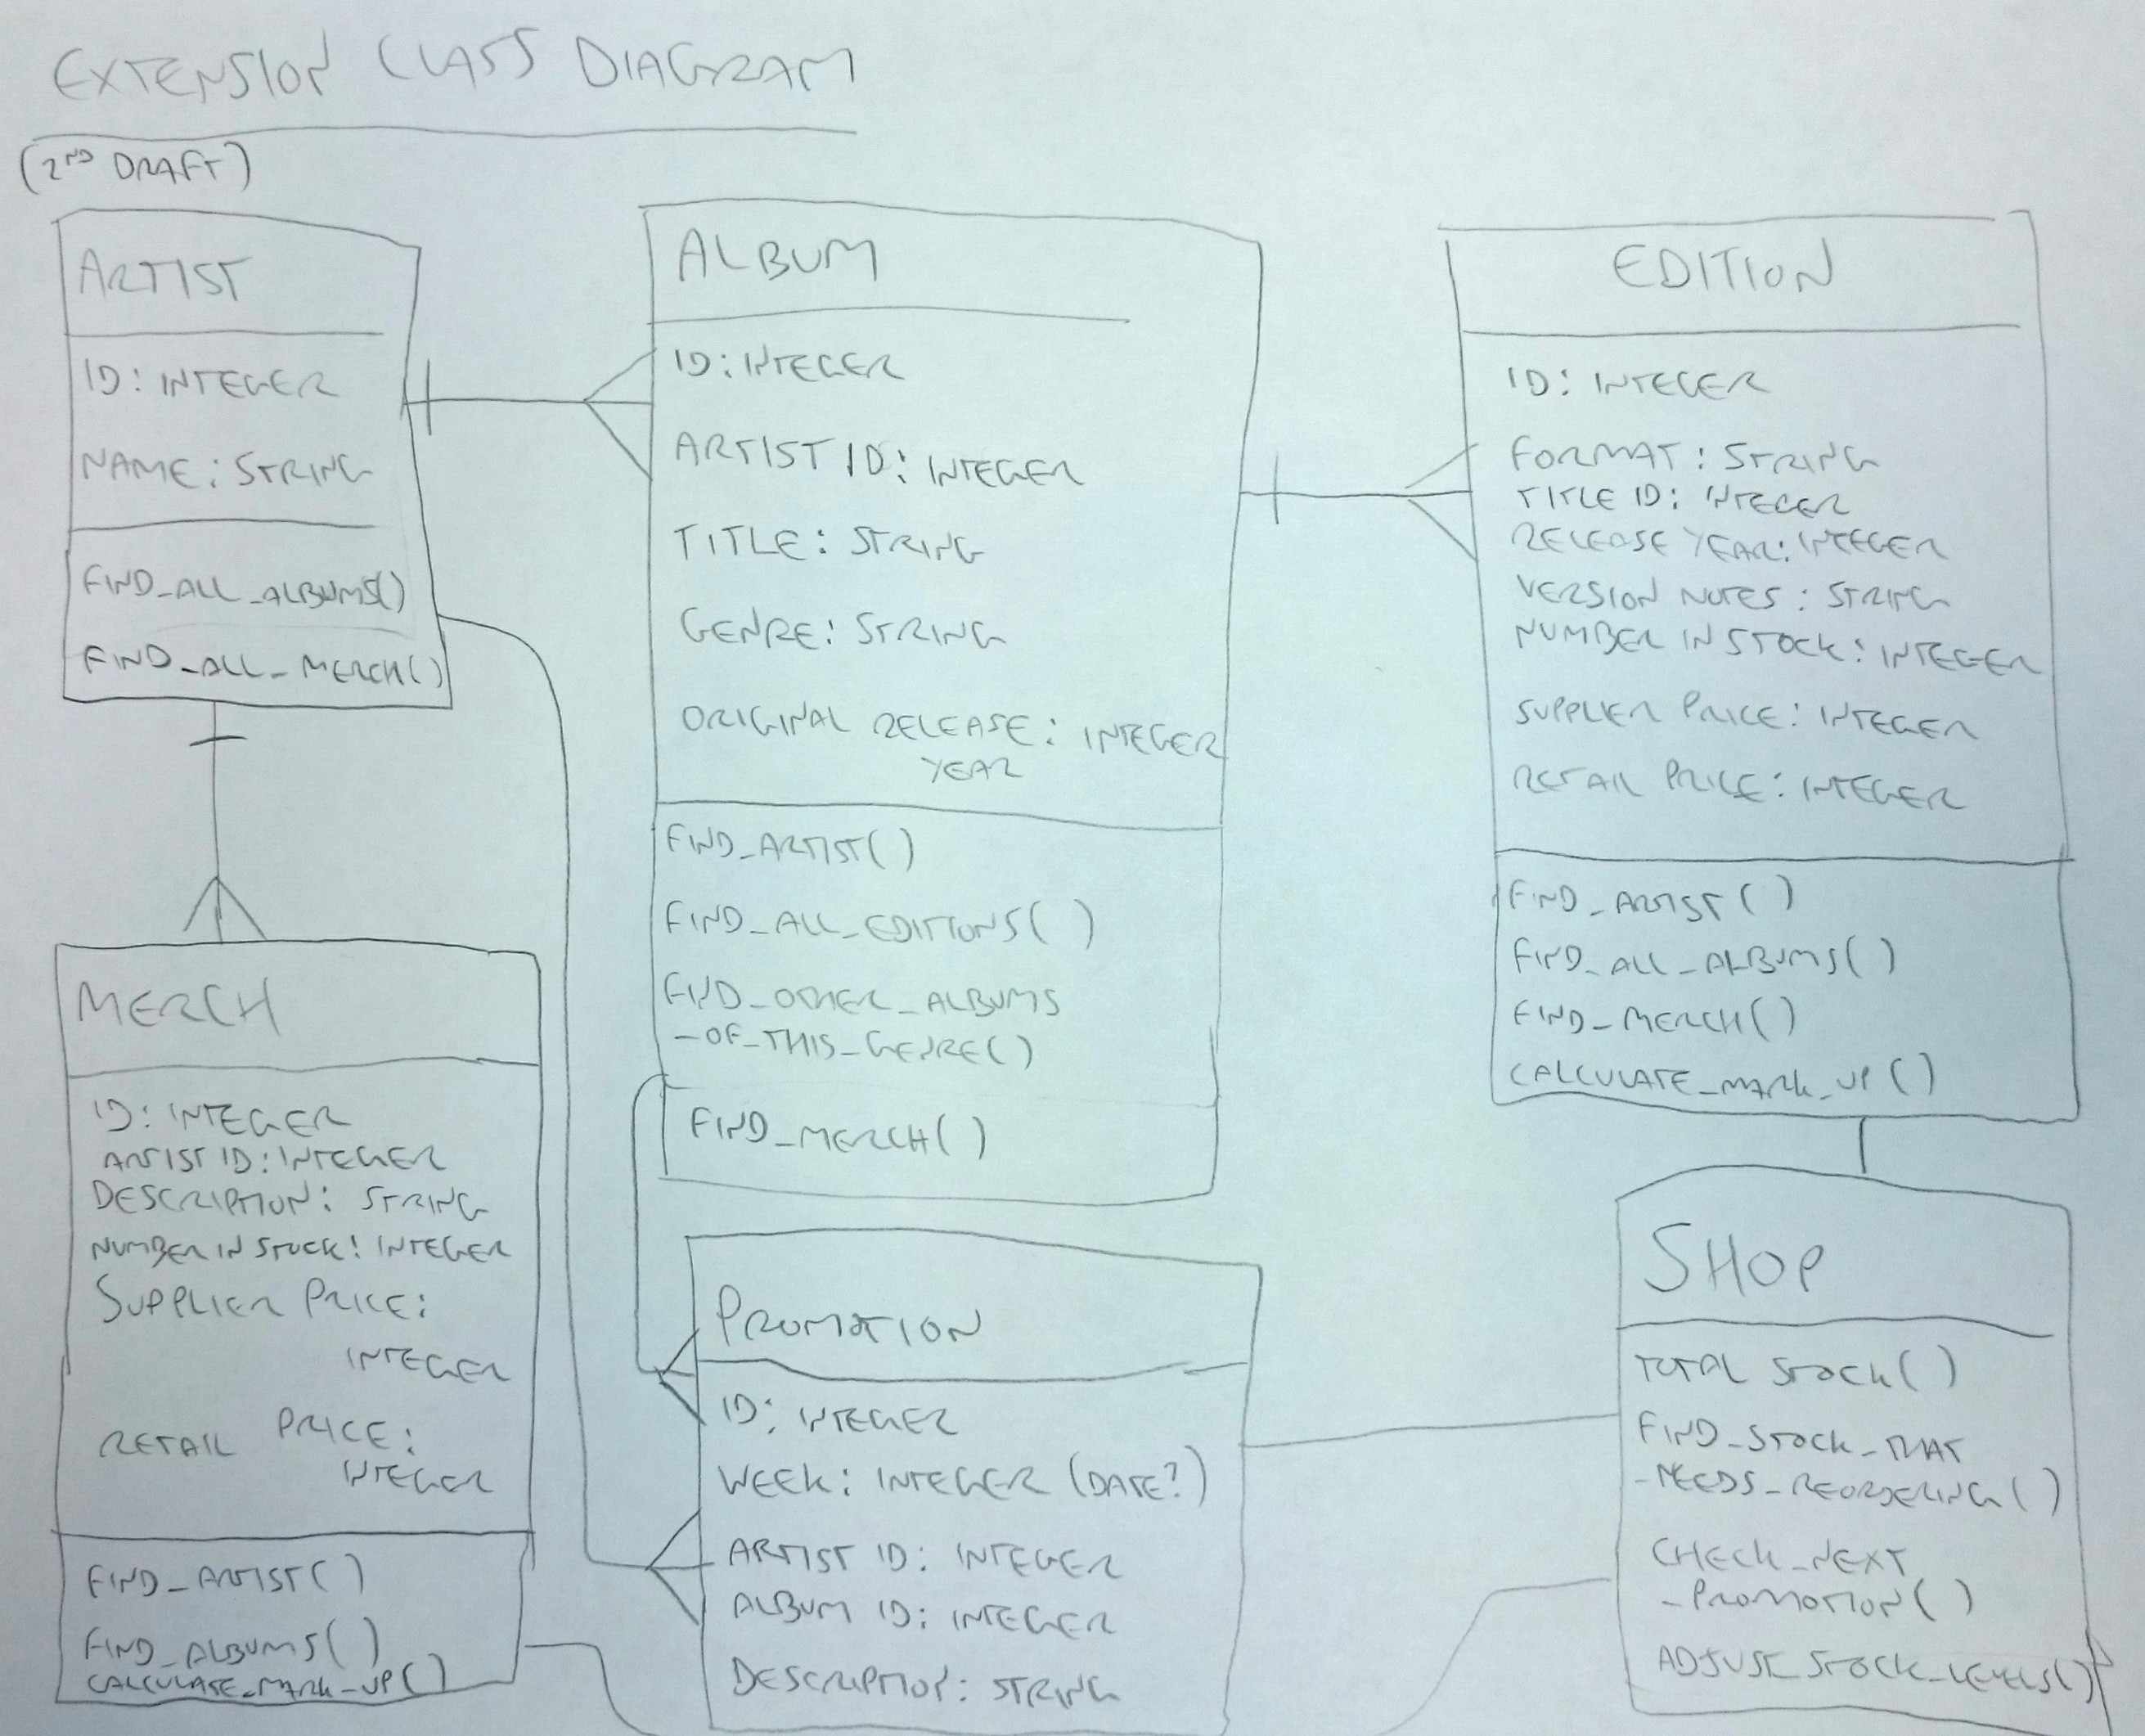 EXTENSION CLASS DIAGRAM
(2ND DRAFT)
ARTIST
ID: INTEGER
NAME: STRING
FIND_ALL_ALBUMS()
FIND_ALL_MERCH()
ALBUM
ID: INTEGER
ARTIST ID: INTEGER
TITLE: STRING
GENRE: STRING
ORIGINAL RELEASE: INTEGER
YEAR
FIND_ARTIST()
FIND_ALL_EDITIONS()
FIND_OTHER_ALBUMS
_OF_THIS_GENRE()
FIND_MERCH()
EDITION
ID: INTEGER
FORMAT: STRING
TITLE ID: INTEGER
RELEASE YEAR: INTEGER
VERSION NOTES: STRING
NUMBER IN STOCK: INTEGER
SUPPLIER PRICE: INTEGER
RETAIL PRICE: INTEGER
FIND_ARTIST()
FIND_ALL_ALBUMS()
FIND_MERCH()
CALCULATE_MARK_UP()
MERCH
ID: INTEGER
ARTIST ID: INTEGER
DESCRIPTION: STRING
NUMBER IN STOCK: INTEGER
SUPPLIER PRICE:
INTEGER
RETAIL PRICE:
INTEGER
FIND_ARTIST()
FIND_ALBUMS()
CALCULATE_MARK_UP()
PROMOTION
ID: INTEGER
WEEK: INTEGER (DATE?)
ARTIST ID: INTEGER
ALBUM ID: INTEGER
DESCRIPTION: STRING
SHOP
TOTAL STOCK()
FIND_STOCK_THAT
_NEEDS_REORDERING()
CHECK_NEXT
_PROMOTION()
ADJUST_STOCK_LEVELS()